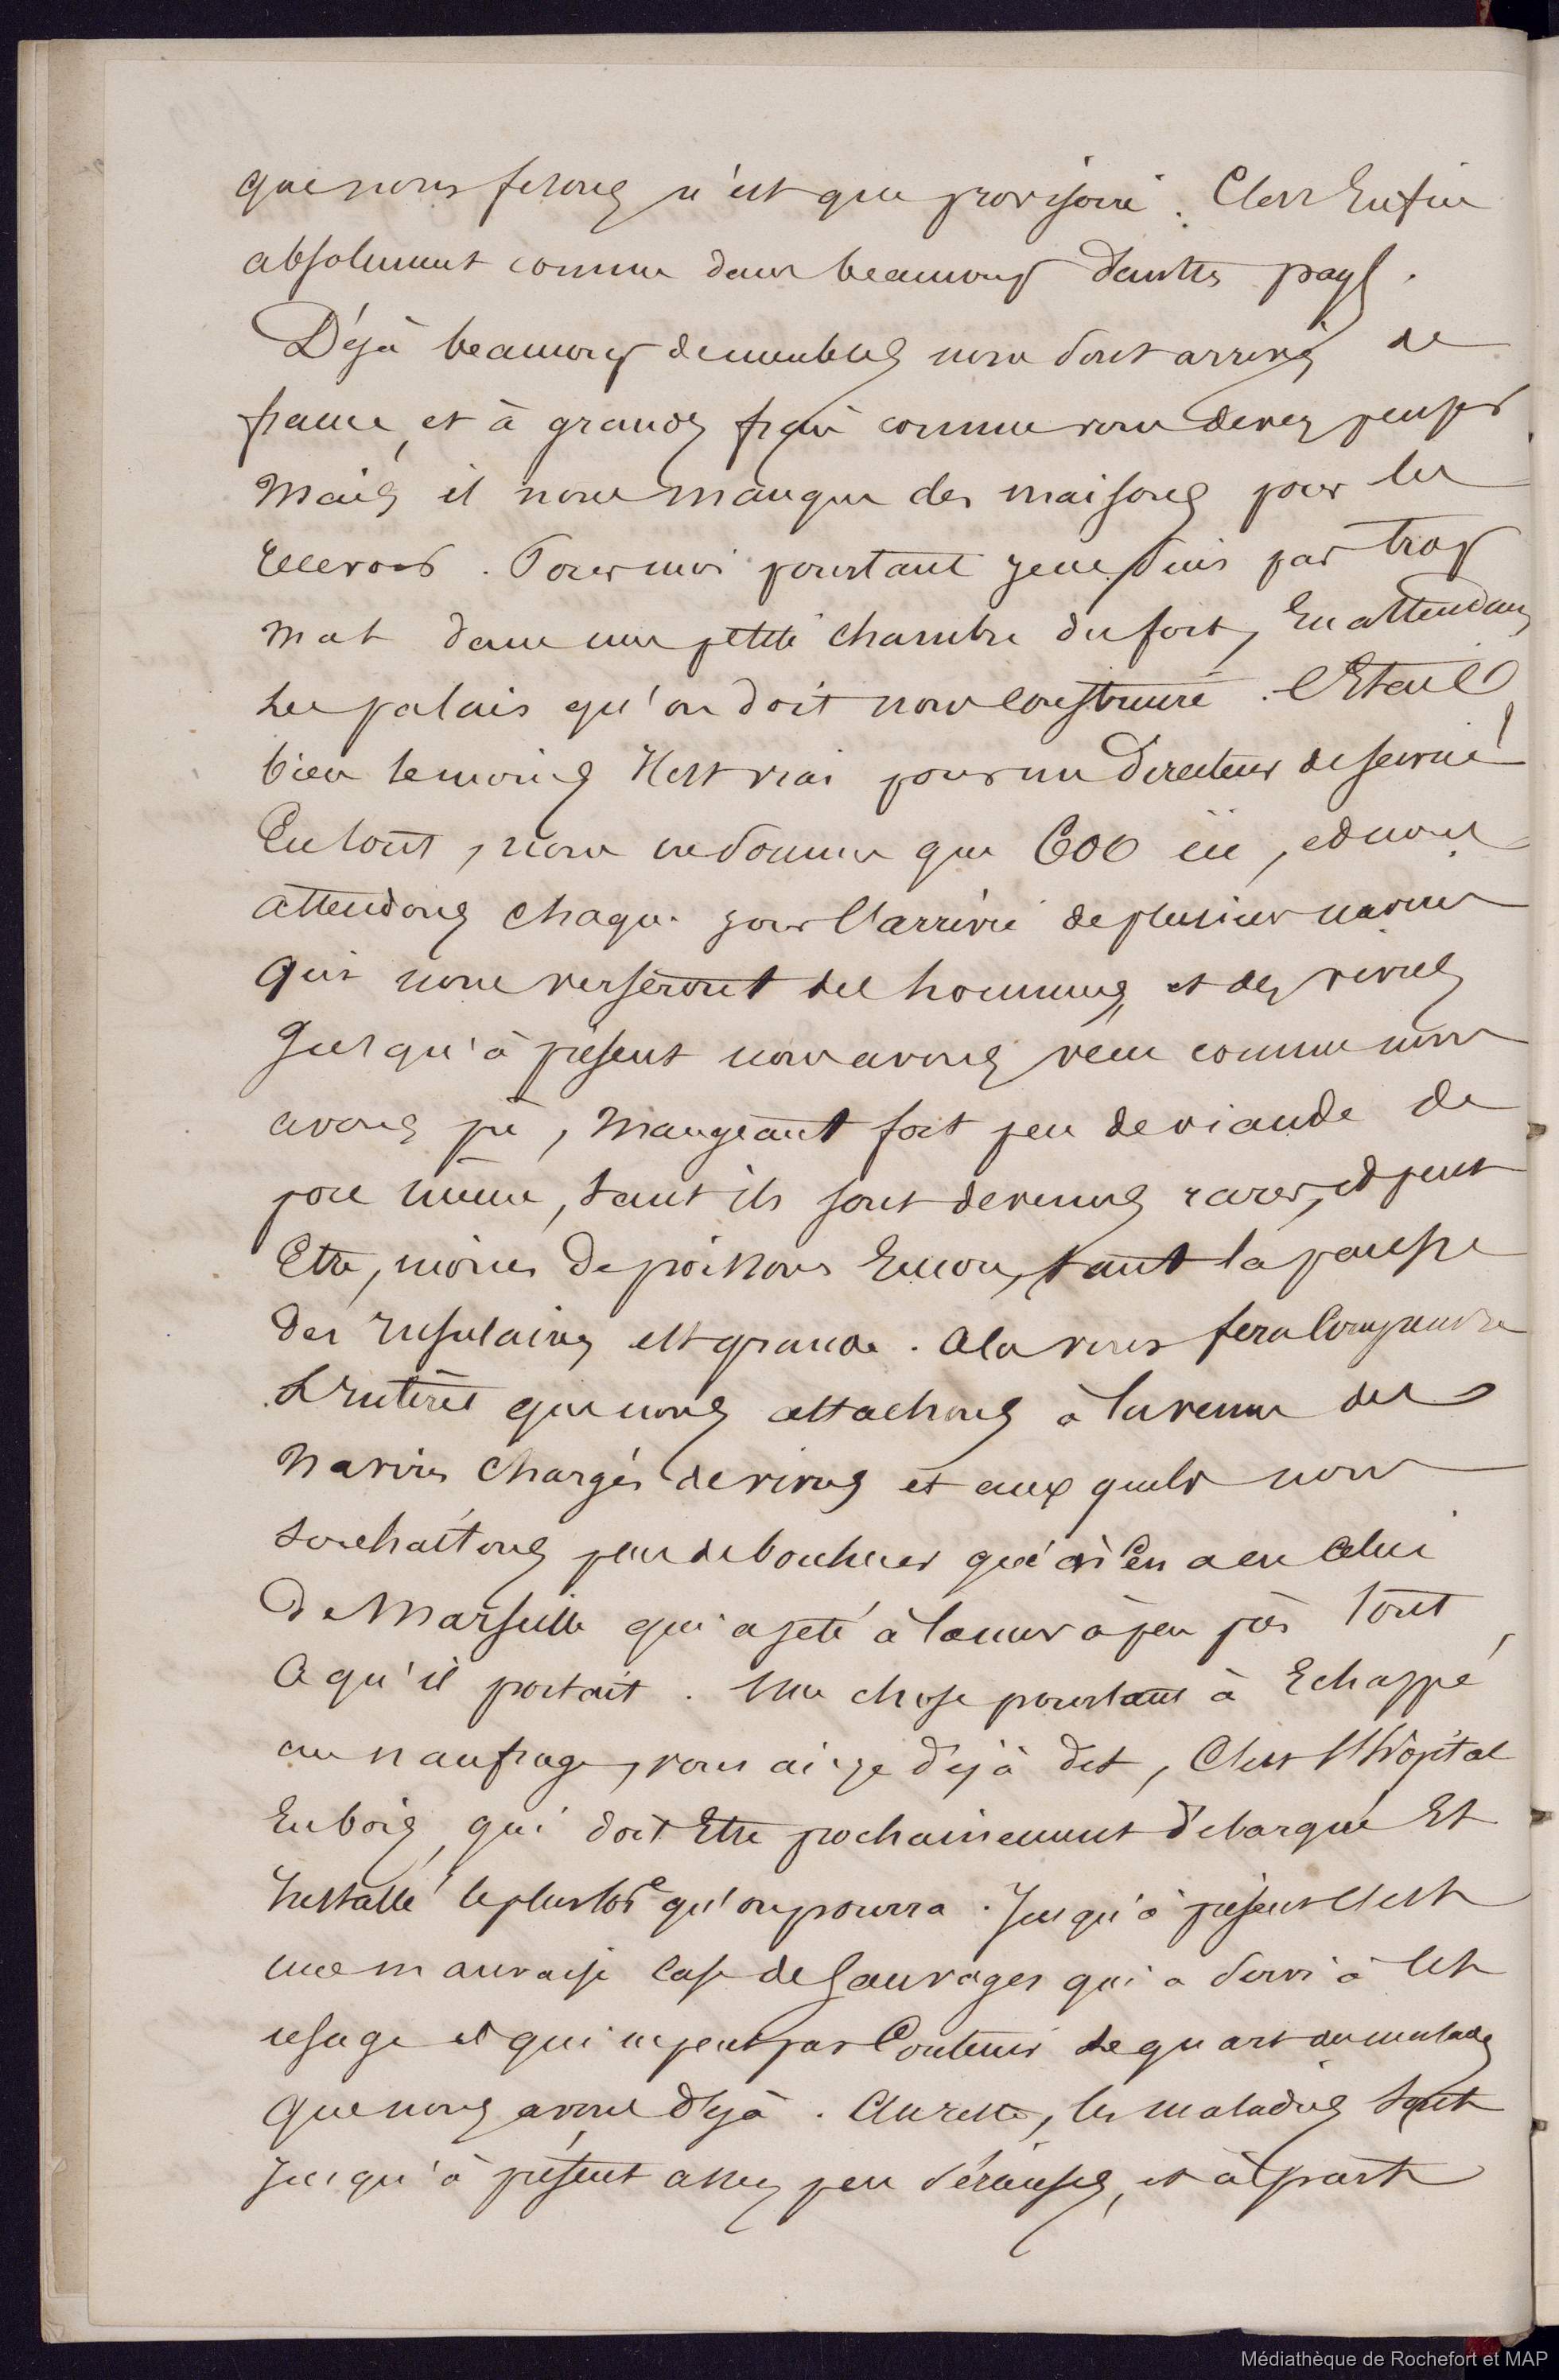 que nous ferons n'est que provisoire. C'est Enfin
absolument comme dans beaucoup d'autres pays.
Déjà beaucoup de meubles nous sont arrivés de
france, et à grands frais comme vous devez penser
Mais il nous manque des maisons pour les
recevoir. Pour moi pourtant je ne suis pas trop
mal dans une petite chambre du fort, En attendant
les palais qu'on doit nous construire. C'était
bien le moins Il est vrai pour un Directeur de service!
En tout, nous ne sommes que 600 ici, et nous
attendons chaque jour l'arrivée de plusieurs navires
qui nous verseront des hommes, et des vivres
Jusqu'à présent nous avons vécu comme nous
avons pû, Mangeant fort peu de viande de
porc même, tant ils sont devenus rares, et peut
Etre, moins de poissons Encore, tant la paresse
des Insulaires est grande. Cela vous fera Comprendre
L'Intérêt que nous attachons à la venue des
Navires chargés de vivres et aux quels nous
souhaitons plus de bonheur que n'en a eu Celui
De Marseille qui a jeté à la mer à peu près tout
Ce qu'il portait. Une chose pourtant à Echappé
au naufrage, vous ai-je déjà dit, C'est l'hôpital
En bois, qui doit Etre prochainement débarqué Et
Installé le plustôt qu'on pourra. Jusqu'à présent C'est
une mauvaise Case de Sauvages qui a servi à cet
usage et qui ne peut pas Contenir le quart des malades
que nous avons déjà. Au reste, les maladies sont
Jusqu'à présent assez peu sérieuses, et à part
Médiathèque de Rochefort et MAP